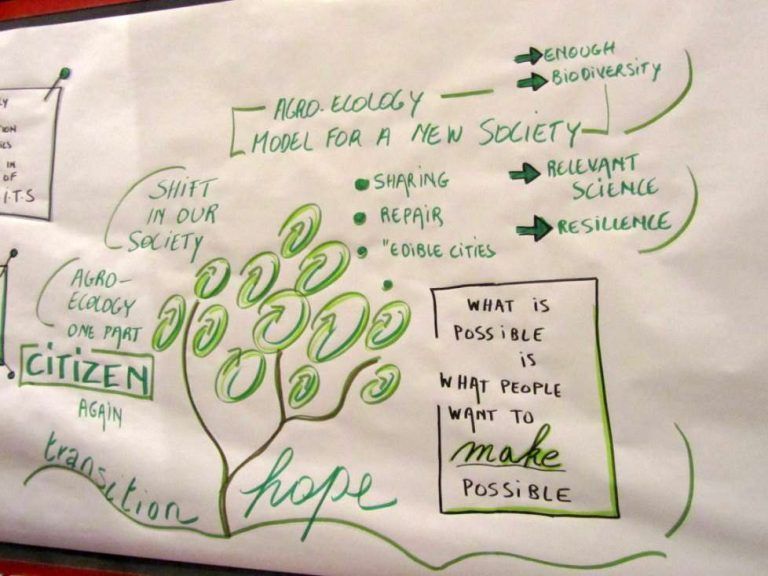 ENOUGH
BIODIVERSITY
AGRO-ECOLOGY
MODEL FOR A NEW SOCIETY
RELEVANT
SCIENCE
RESILLENCE
SHARING
REPAIR
"EDIBLE CITIES
SHIFT
IN OUR
SOCIETY
AGRO-
ECOLOGY
ONE PART
CITIZEN
AGAIN
transition
hope
WHAT IS
POSSIBLE
IS
WHAT PEOPLE
WANT TO
make
POSSIBLE
IN
OF
I.T.S